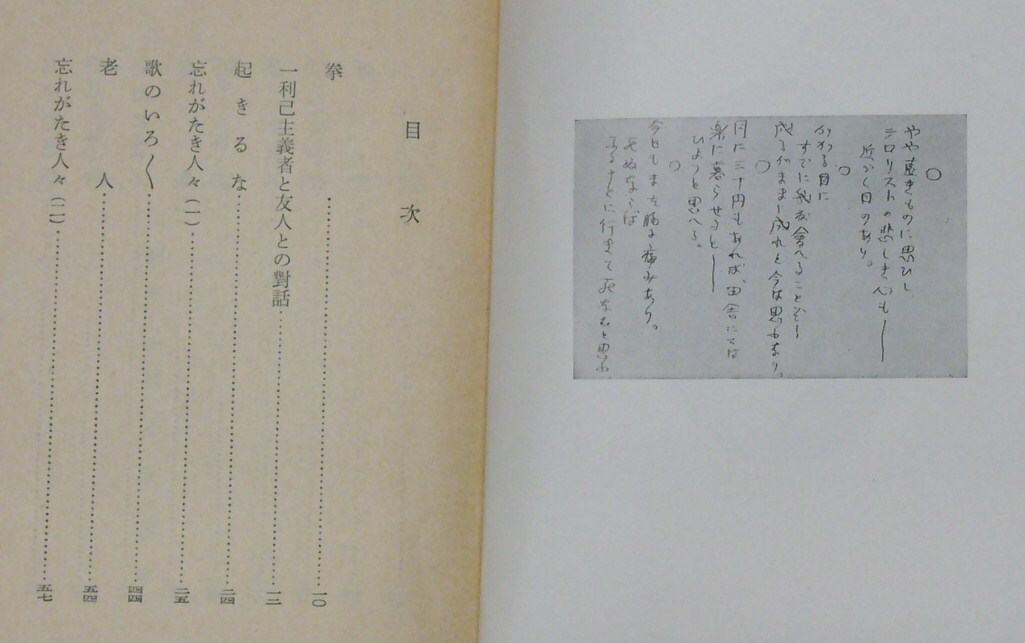 ○
やや遠きものに思ひし
テロリストの悲しき心も――
近づく日のあり。
○
かかる目に
すでに幾度會へることぞ！
成るがままに成れと今は思ふなり。
○
月に三十円もあれば、田舎にては
楽に暮らせると――
ひよつと思へる。
○
今日もまた胸に痛みあり。
死ぬならば
ふるさとに行きて死なむと思ふ
目次
拳……一〇
一利己主義者と友人との對話……一二
起きるな……二四
忘れがたき人々(一)……二五
歌のいろ〱……四四
老人……五四
忘れがたき人々(二)……五七